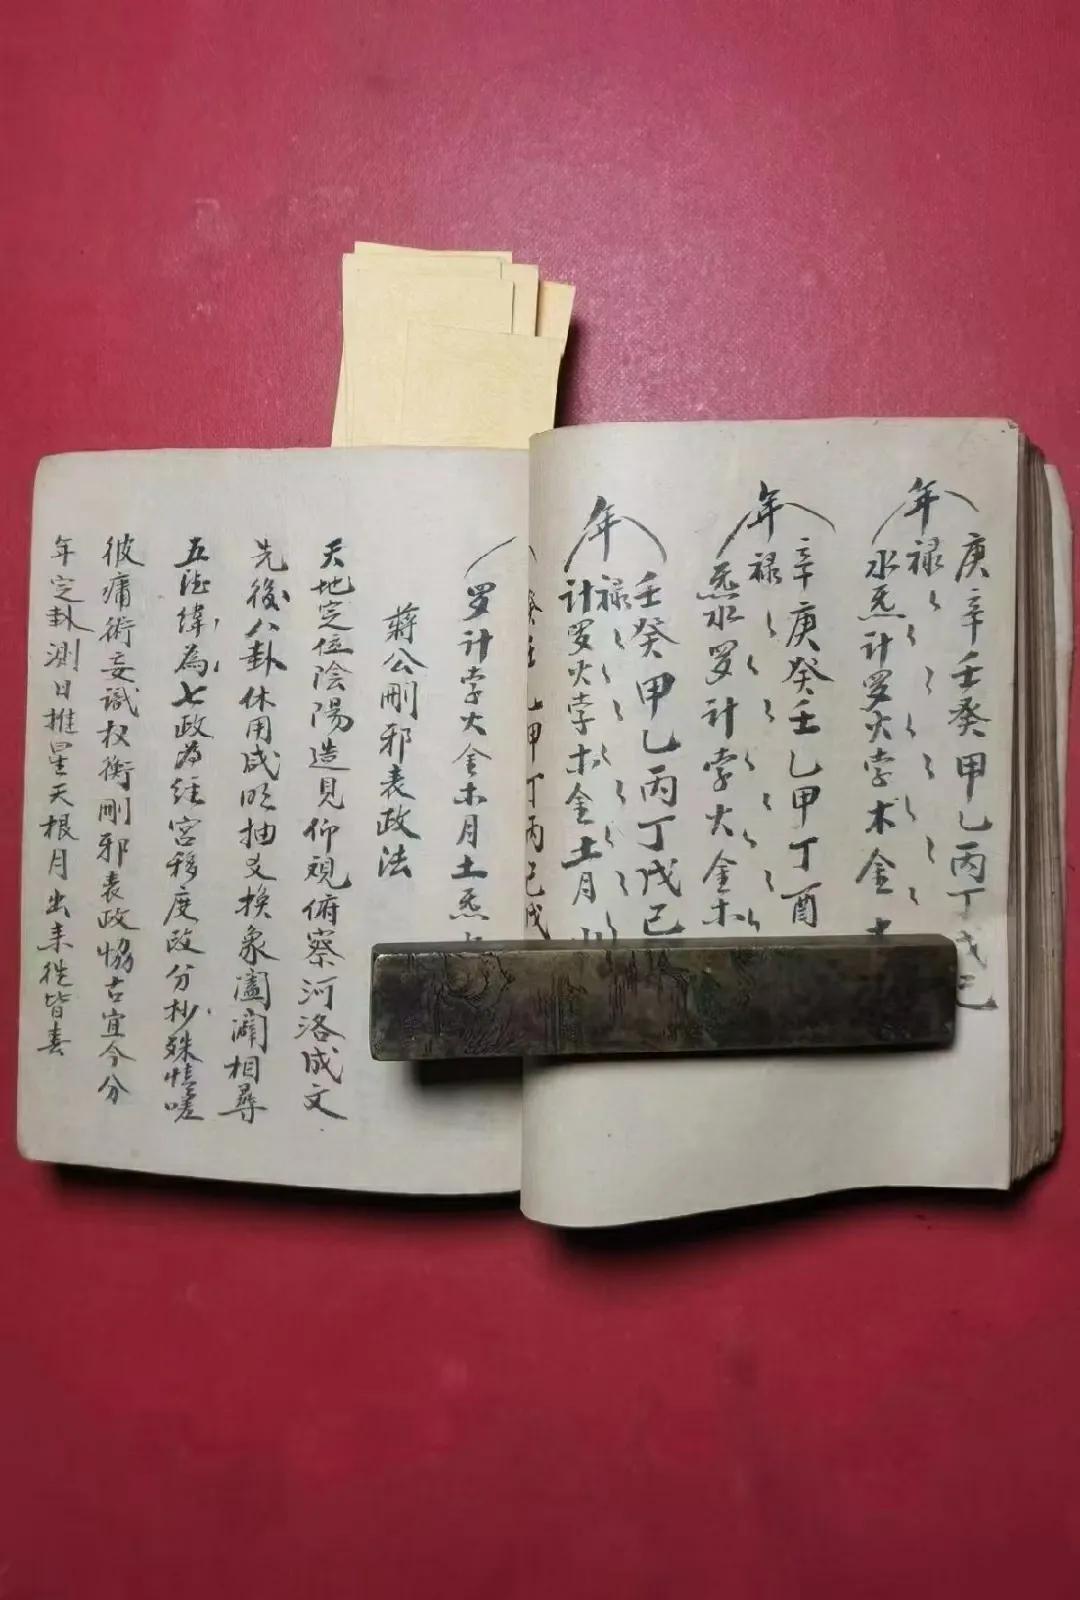 庚辛壬癸甲乙丙丁戊己
年禄
水炁計罗火孛木金土
辛庚癸壬乙甲丁酉
年禄
炁水罗計孛火金木
壬癸甲乙丙丁戊己
年禄
計罗火孛木金土月
癸壬乙甲丁丙己戊
罗計孛火金木月土炁
蔣公刪邪表政法
天地定位陰陽造見仰观俯察河洛成文
先後八卦体用咸明抽爻換象闔闢相尋
五德緯為七政為经宮移度改分杪殊情嗟
彼庸術妄識权衡刪邪表政恊古宜今分
年定卦測日推星天根月出来徃皆春